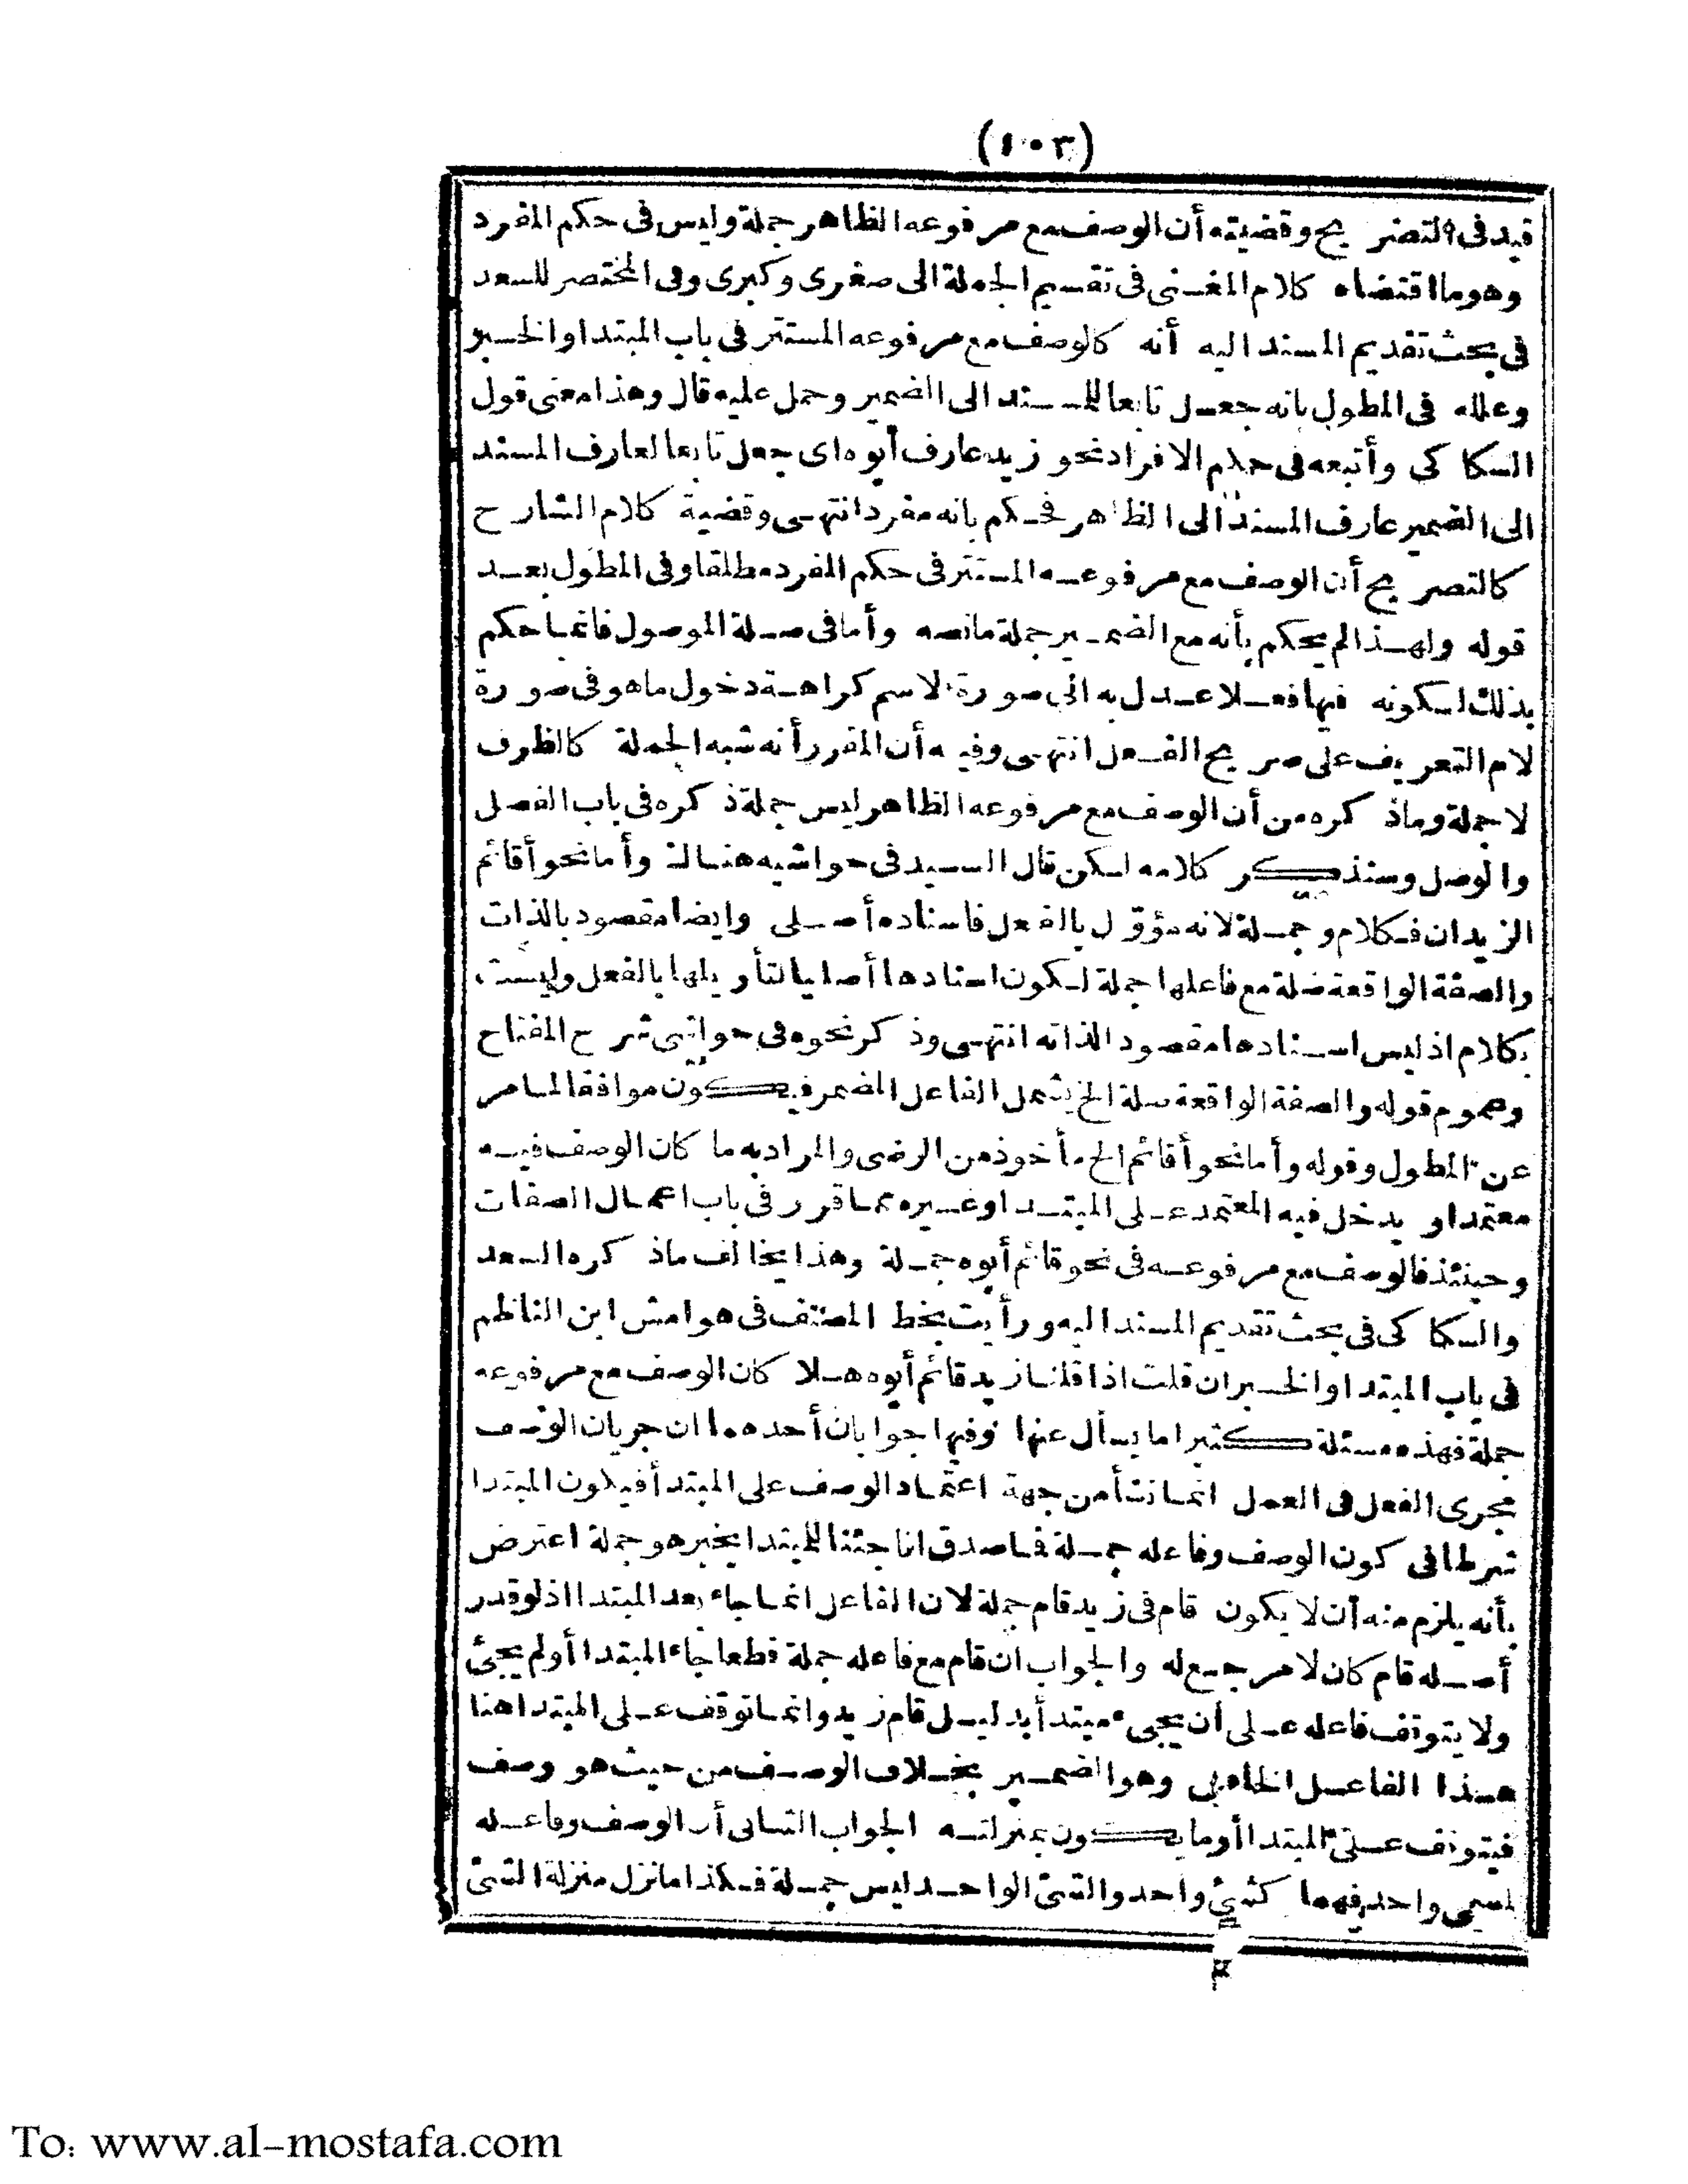 (١٠٣)
قيد فى التصريح وقضيته أن الوصف مع مرفوعه الظاهر جملة وليس فى حكم المفرد
وهو ما اقتضاه كلام المغنى فى تقسيم الجملة الى صغرى وكبرى وفى المختصر للسعد
فى بحث تقديم المسند اليه أنه كالوصف مع مرفوعه المستتر فى باب المبتدا والخبر
وعلله فى المطول بانه جعل تابعا للمسند الى الضمير وحمل عليه قال وهذا معنى قول
السكاكى وأتبعه فى حكم الافراد نحو زيد عارف أبوه اى جعل تابعا لعارف المسند
الى الضمير عارف المسند الى الظاهر فحكم بانه مفرد انتهى وقضية كلام الشارح
كالتصريح أن الوصف مع مرفوعه المستتر فى حكم المفرد مطلقا وفى المطول بعد
قوله ولهذا لم يحكم بأنه مع الضمير جملة ما نصه وأما فى صلة الموصول فانما حكم
بذلك لكونه فيها فعلا عدل به الى صورة الاسم كراهة دخول ما هو فى صورة
لام التعريف على صريح الفعل انتهى وفيه أن المقرر أنه شبه الجملة كالظرف
لا جملة وما ذكره من أن الوصف مع مرفوعه الظاهر ليس جملة ذكره فى باب الفصل
والوصل وسنذكر كلامه لكن قال السيد فى حواشيه هنالك وأما نحو أقائم
الزيدان فكلام وجملة لانه مؤول بالفعل فاسناده أصلى وايضا مقصود بالذات
والصفة الواقعة صلة مع فاعلها جملة لكون اسنادها أصليا لتأويلها بالفعل وليست
بكلام اذ ليس اسنادها مقصودا لذاته انتهى وذكر نحوه فى حواشى شرح المفتاح
وعموم قوله والصفة الواقعة صلة الخ يشمل الفاعل المضمر فيكون موافقا لما مر
عن المطول وقوله وأما نحو أقائم الخ مأخوذ من الرضى والمراد به ما كان الوصف فيه
معتمدا ويدخل فيه المعتمد على المبتدا وغيره مما قرر فى باب اعمال الصفات
وحينئذ فالوصف مع مرفوعه فى نحو قائم أبوه جملة وهذا يخالف ما ذكره السعد
والسكاكى فى بحث تقديم المسند اليه ورأيت بخط المصنف فى هوامش ابن الناظم
فى باب المبتدا والخبر ان قلت اذا قلنا زيد قائم أبوه هلا كان الوصف مع مرفوعه
جملة فهذه مسئلة كثيرا ما يسأل عنها وفيها جوابان أحدهما ان جريان الوصف
مجرى الفعل فى العمل انما نشأ من جهة اعتماد الوصف على المبتدأ فيكون المبتدا
شرطا فى كون الوصف وفاعله جملة فما صدق انا جئنا للمبتدا بخبر هو جملة اعترض
بأنه يلزم منه أن لا يكون قام فى زيد قام جملة لان الفاعل انما جاء بعد المبتدا اذ لو قدر
أصله قام كان لا مرجع له والجواب ان قام مع فاعله جملة قطعا جاء المبتدا أو لم يجئ
ولا يتوقف فاعله على أن يجىء مبتدأ بدليل قام زيد وانما توقف على المبتدا هنا
هذا الفاعل الخاص وهو الضمير بخلاف الوصف من حيث هو وصف
فيتوقف على المبتدا أو ما يكون بمنزلته الجواب الثانى أن الوصف وفاعله
لمسمى واحد فهما كشئ واحد والشئ الواحد ليس جملة فكذا ما نزل منزلة الشئ
To: www.al-mostafa.com